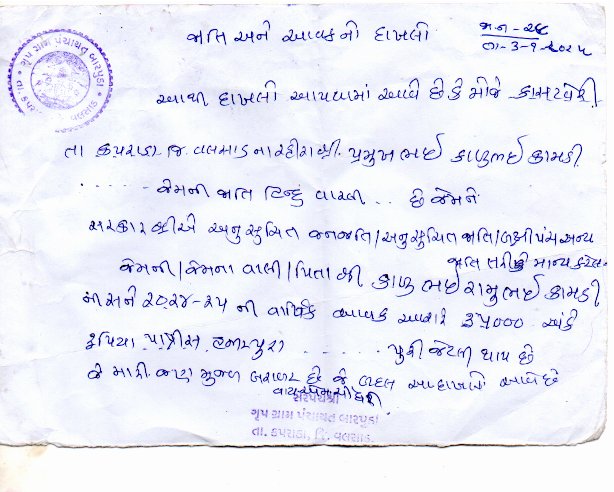 જાતિ અને આવકનો દાખલો
જા.ન - ૨૮
તા-૩-૧-૨૦૨૫
ગૃપ ગ્રામ પંચાયત બારપુડા
આથી દાખલો આપવામાં આવે છે કે મોજે
તા કપરાડા જિ. વલસાડ ના રહીશશ્રી. પ્રમુખભાઈ કાળુભાઈ કામડી
. . . . . જેમની જાતિ હિન્દુ વારલી . . છે જેમને
સરકારશ્રીએ અનુસુચિત જનજાતિ/અનુસુચિત જાતિ/બક્ષીપંચ અન્ય
જાતિ તરીકે માન્ય કરેલ
જેમની/જેમના વાલી/પિતાશ્રી કાળુભાઈ રામુભાઈ કામડી
સને ૨૦૨૪-૨૫ ની વાર્ષિક આવક આશરે ૩૫૦૦૦ અંકે
રૂપિયા પાંત્રીસ હજાર પુરા . . . . . . પુરી જેટલી થાય છે
જે મારી જાણ મુજબ બરાબર છે જે બદલ આ દાખલો આપેલ છે
સરપંચશ્રી
ગૃપ ગ્રામ પંચાયત બારપુડા
તા. કપરાડા, જિ. વલસાડ.